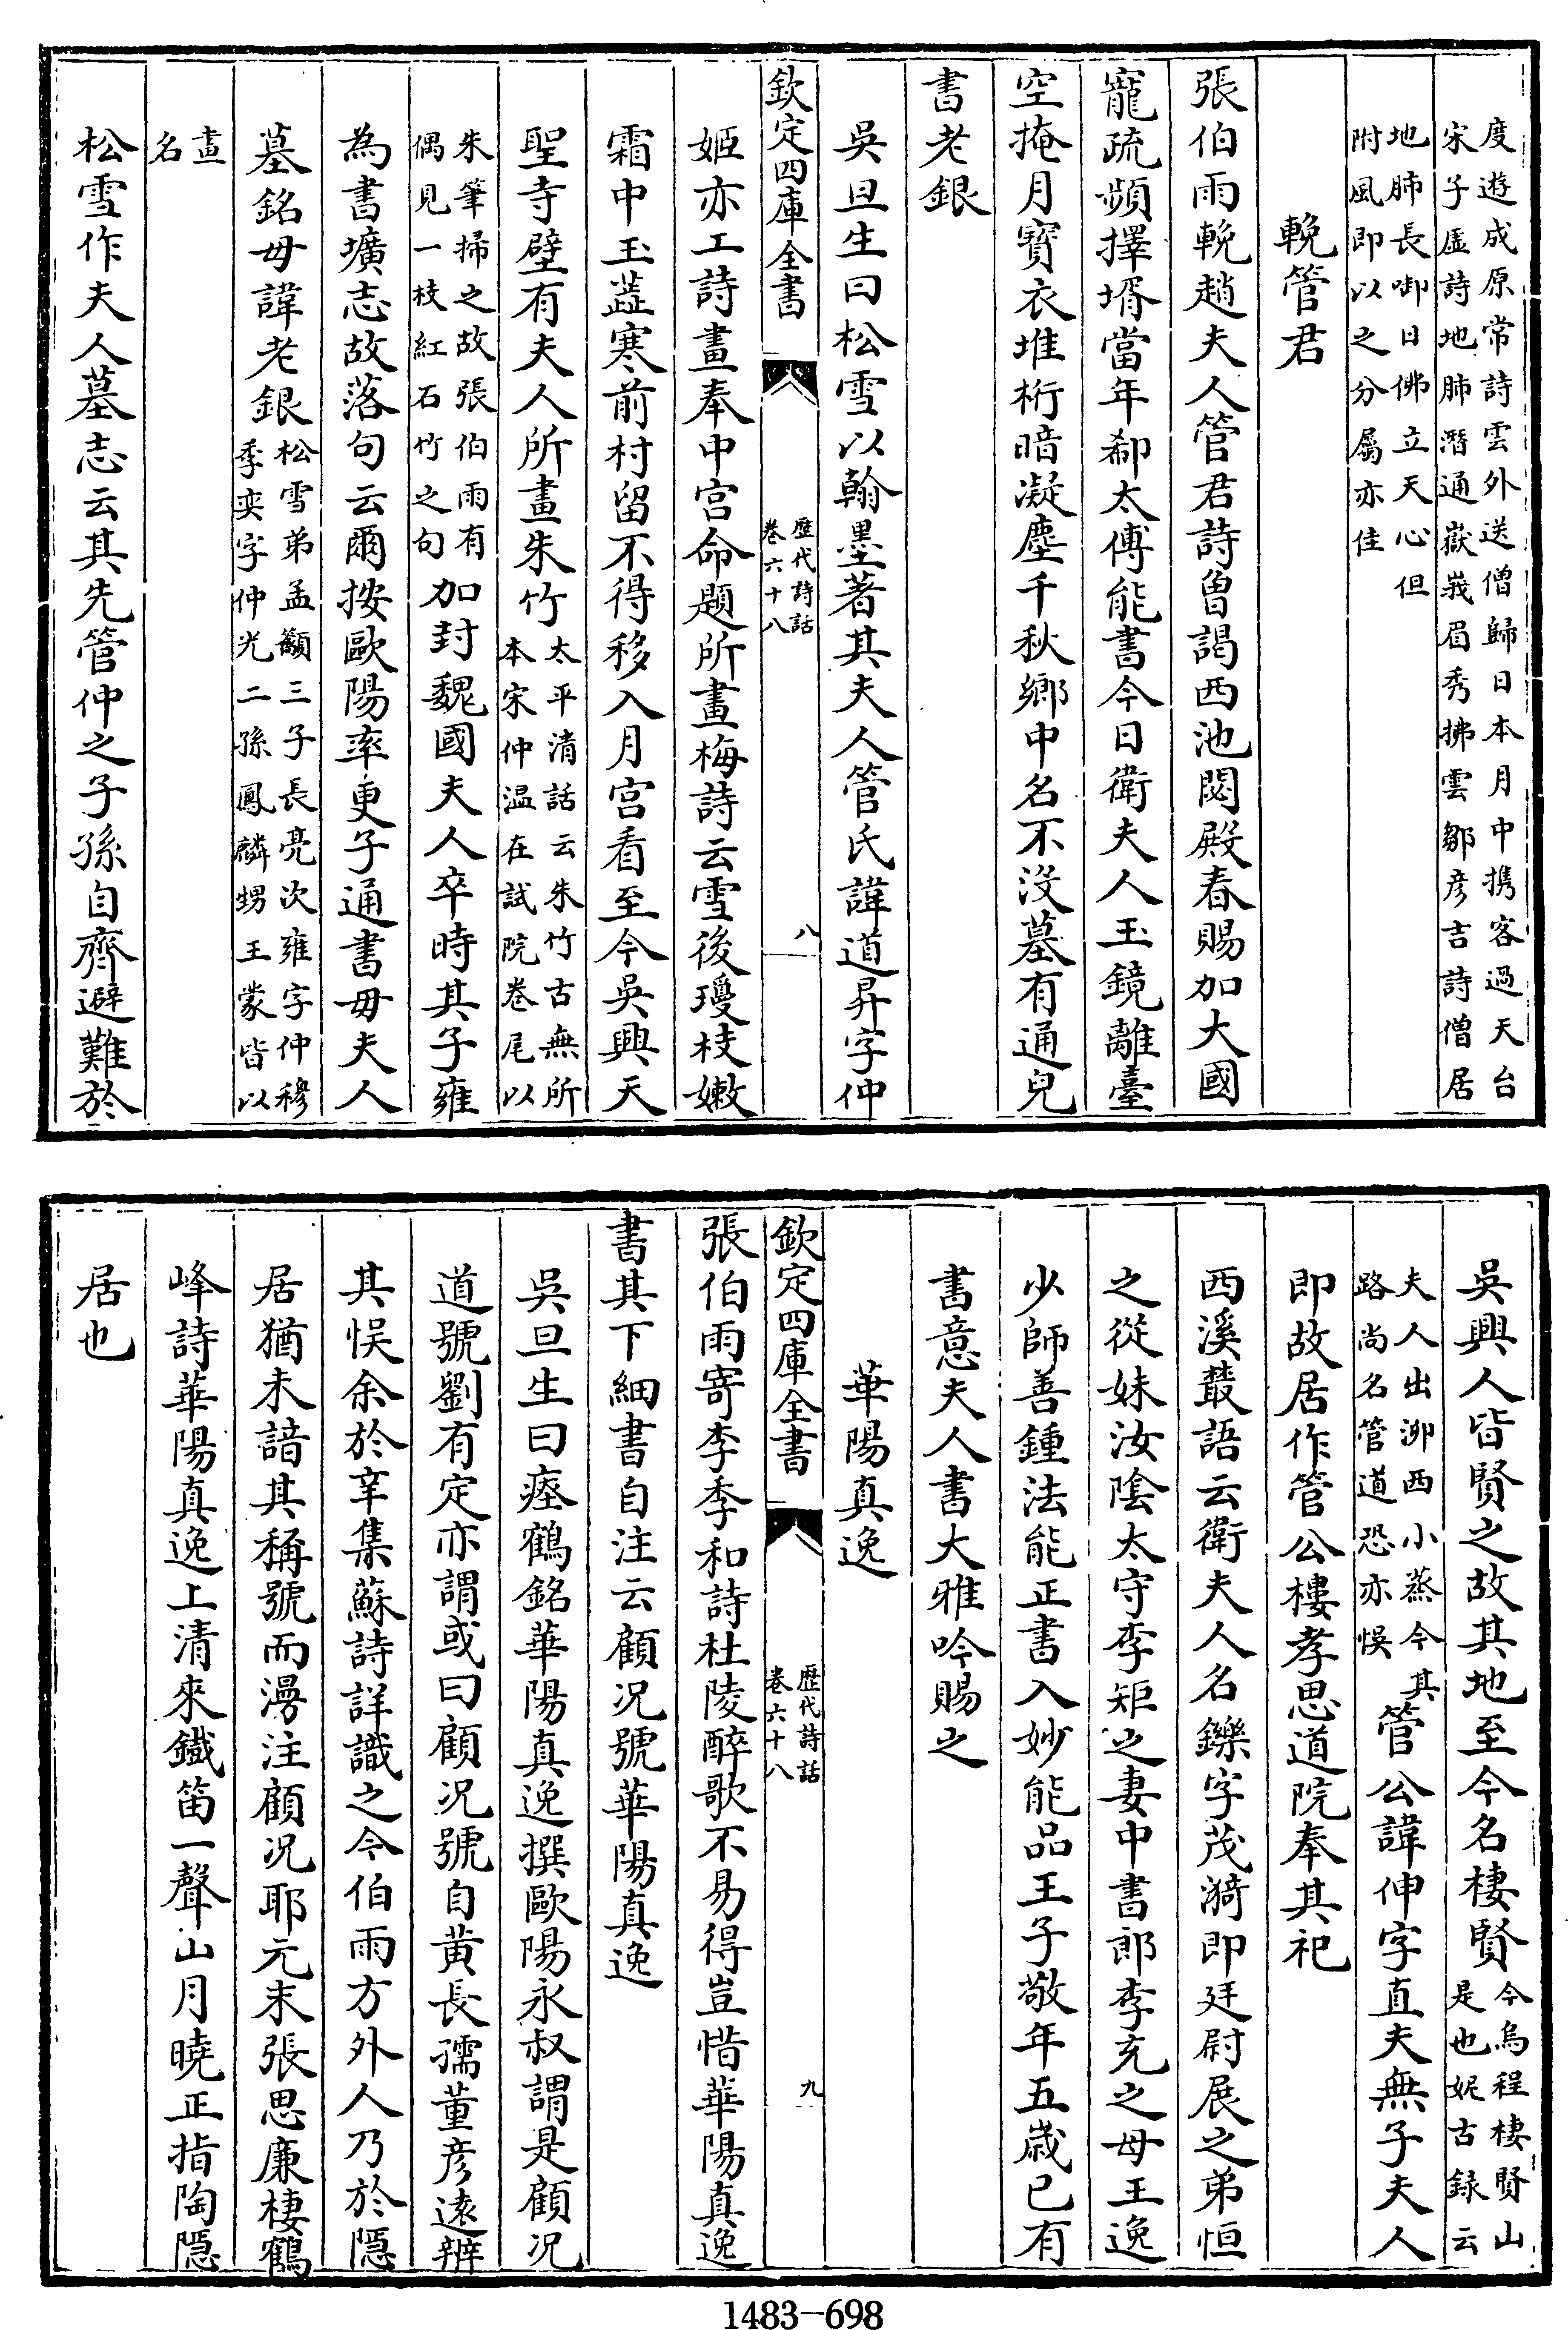 度遊成原常詩雲外送僧歸日本月中携客過天台
宋子虛詩地肺潛通嶽峩眉秀拂雲鄒彦吉詩僧居
地肺長啣日佛立天心但
附風即以之分屬亦佳
輓管君
張伯雨輓趙夫人管君詩曽謁西池閟殿春賜加大國
寵疏頻擇壻當年郗太傅能書今日衛夫人玉鏡離臺
空掩月寶衣堆桁暗凝塵千秋鄉中名不没墓有通兒
書老銀
吳旦生曰松雪以翰墨著其夫人管氏諱道昇字仲
欽定四庫全書
歴代詩話
卷六十八
八
姬亦工詩畫奉中宫命題所畫梅詩云雪後瓊枝嫩
霜中玉蘂寒前村留不得移入月宫看至今吳興天
聖寺壁有夫人所畫朱竹太平清話云朱竹古無所
本宋仲温在試院卷尾以
朱筆掃之故張伯雨有
偶見一枝紅石竹之句加封魏國夫人卒時其子雍
為書壙志故落句云爾按歐陽率更子通書毋夫人
墓銘毋諱老銀松雪弟孟籲三子長亮次雍字仲穆
季奕字仲光二孫鳳麟甥王蒙皆以
畫
名
松雪作夫人墓志云其先管仲之子孫自齊避難於
吳興人皆賢之故其地至今名棲賢今烏程棲賢山
是也妮古録云
夫人出泖西小蒸今其
路尚名管道恐亦悮管公諱伸字直夫無子夫人
即故居作管公樓孝思道院奉其祀
西溪叢語云衛夫人名鑠字茂漪即廷尉展之弟恒
之從妹汝陰太守李矩之妻中書郎李充之母王逸
少師善鍾法能正書入妙能品王子敬年五歳已有
書意夫人書大雅吟賜之
華陽真逸
欽定四庫全書
歴代詩話
卷六十八
九
張伯雨寄李季和詩杜陵醉歌不易得豈惜華陽真逸
書其下細書自注云顧况號華陽真逸
吳旦生曰瘞鶴銘華陽真逸撰歐陽永叔謂是顧况
道號劉有定亦謂或曰顧况號自黄長孺董彦遠辨
其悮余於辛集蘇詩詳識之今伯雨方外人乃於隱
居猶未諳其稱號而漫注顧况耶元末張思廉棲鶴
峰詩華陽真逸上清來鐵笛一聲山月曉正指陶隱
居也
1483-698